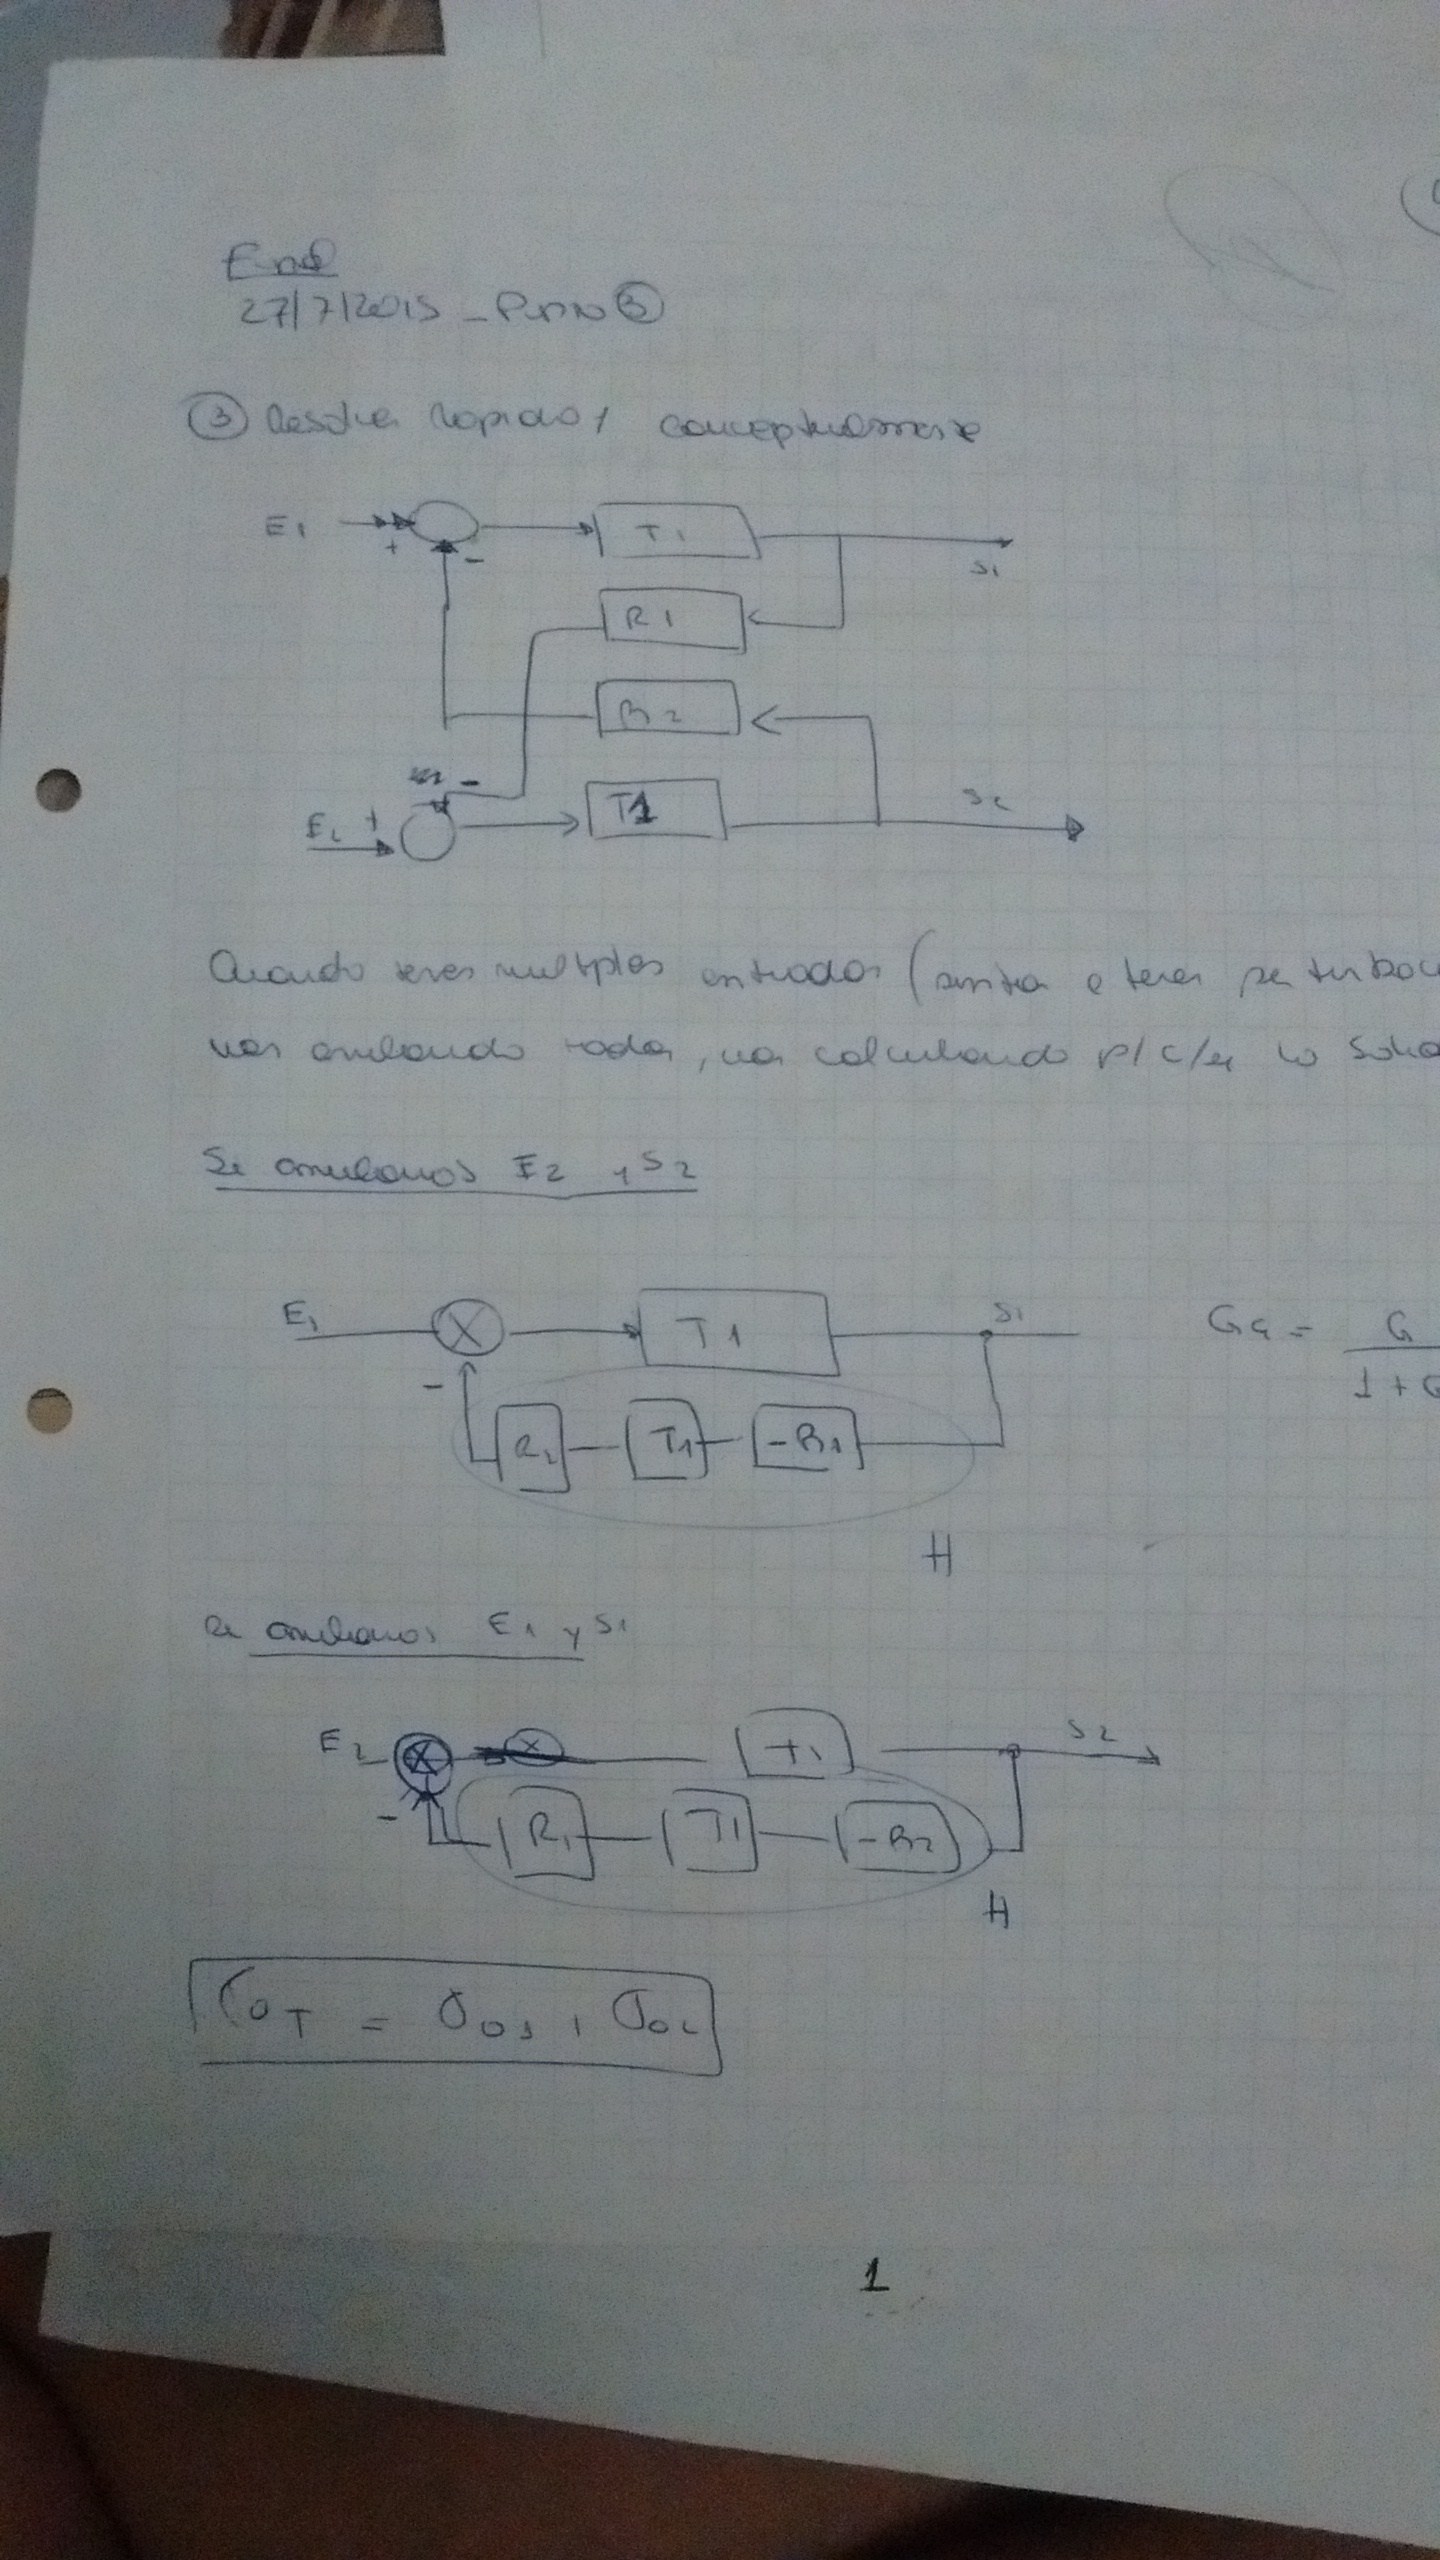 Final
27/7/2015 - Punto 3
③ Resolver rapido y conceptualmente
E1 + - T1 S1
R1
R2
-
E2 + T1 S2
Cuando tenes multiples entradas (
vas anulando todas, vas calculando p/ c/u la
Si anulamos E2 y S2
E1 T1 S1
- R2 T1 -R1
G
1 +
H
Si anulamos E1 y S1
E2 T1 S2
- R1 T1 -R2
H
1